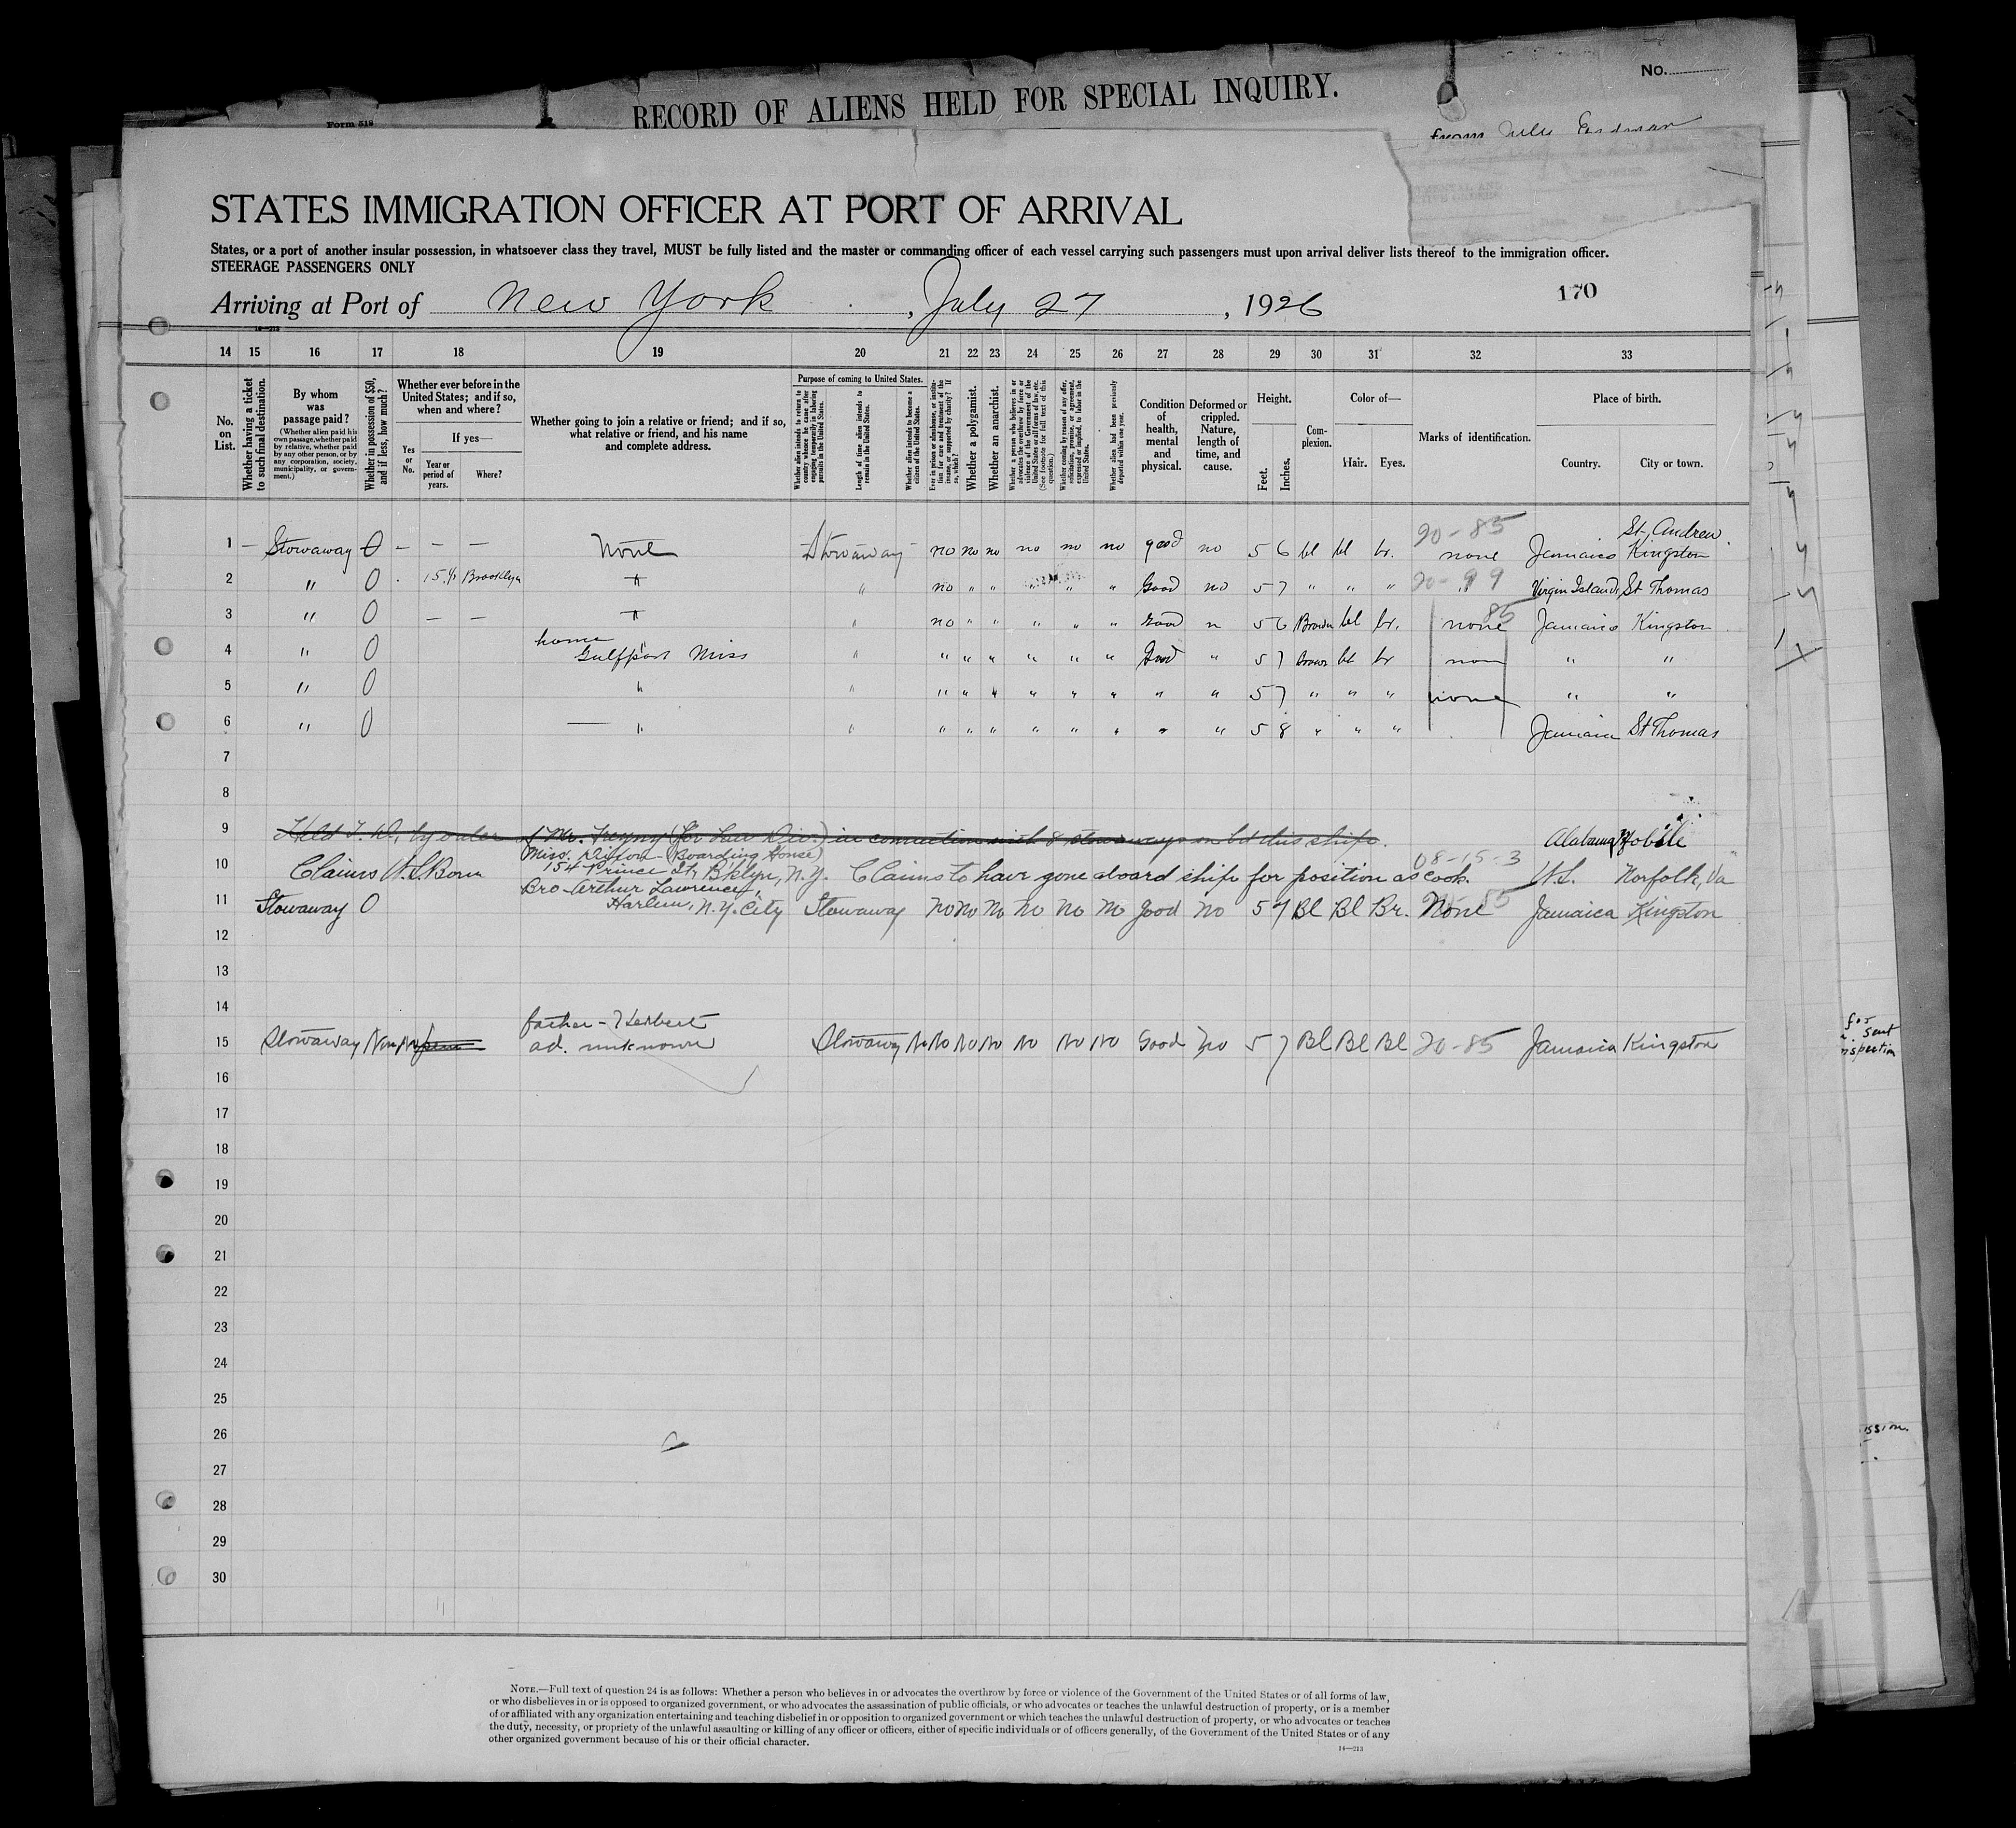 No.
RECORD OF ALIENS HELD FOR SPECIAL INQUIRY.
Form 518
STATES IMMIGRATION OFFICER AT PORT OF ARRIVAL
States, or a port of another insular possession, in whatsoever class they travel, MUST be fully listed and the master or commanding officer of each vessel carrying such passengers must upon arrival deliver lists thereof to the immigration officer.
STEERAGE PASSENGERS ONLY
Arriving at Port of New York, July 27, 1926
170
14 15 16 17 18 19 20 21 22 23 24 25 26 27 28 29 30 31 32 33
No. on List.
Whether having a ticket to such final destination.
By whom was passage paid?
(Whether alien paid his own passage, whether paid by relative, whether paid by any other person, or by any corporation, society, municipality, or government.)
Whether in possession of $50, and if less, how much?
Whether ever before in the United States; and if so, when and where?
Yes or No.
If yes—
Year or period of years.
Where?
Whether going to join a relative or friend; and if so, what relative or friend, and his name and complete address.
Purpose of coming to United States.
Whether alien intends to return to country whence he came after engaging temporarily in laboring pursuits in the United States.
Length of time alien intends to remain in the United States.
Whether alien intends to become a citizen of the United States.
Ever in prison or almshouse, or institution for care and treatment of the insane, or supported by charity? If so, which?
Whether a polygamist.
Whether an anarchist.
Whether a person who believes in or advocates the overthrow by force or violence of the Government of the United States or all forms of law, etc. (See footnote for full text of this question.)
Whether coming by reason of any offer, solicitation, promise, or agreement, expressed or implied, to labor in the United States.
Whether alien had been previously deported within one year.
Condition of health, mental and physical.
Deformed or crippled. Nature, length of time, and cause.
Height.
Feet.
Inches.
Complexion.
Color of—
Hair.
Eyes.
Marks of identification.
Place of birth.
Country.
City or town.
1 — Stowaway 0 — — — None Stowaway no no no no no no good no 5 6 bl bl br. 20-85 none Jamaica St. Andrew Kingston
2 " 0 Brooklyn " " no " " " " " Good no 5 7 " " " 20-99 Virgin Islands St Thomas
3 " 0 — — " " no " " " " " Good n 5 6 Brown bl br. none 85 Jamaica Kingston
4 " 0 home Gulfport Miss " " " " " " " Good " 5 7 Brown bl br none " "
5 " 0 " " " " " " " " " " 5 7 " " " none " "
6 " 0 — " " " " " " " " " " 5 8 " " " Jamaica St Thomas
7
8
9 in connection with 8 stowaways on bd this ship. Alabama Mobile
10 Claims U.S. Born (Boarding House) 154 Prince St, Bklyn, N.Y. Claims to have gone aboard ship for position as cook. 08-15-3 U.S. Norfolk, Va
11 Stowaway 0 Bro-Arthur Lawrence, Harlem, N.Y. City Stowaway no no no no no no good no 5 7 Bl Bl Br. None Jamaica Kingston
12
13
14
15 Stowaway father - Herbert ad. unknown Stowaway No No No No No No No Good No 5 7 Bl Bl Bl 20-85 Jamaica Kingston
16
17
18
19
20
21
22
23
24
25
26
27
28
29
30
for
sent
NOTE.—Full text of question 24 is as follows: Whether a person who believes in or advocates the overthrow by force or violence of the Government of the United States or of all forms of law,
or who disbelieves in or is opposed to organized government, or who advocates the assassination of public officials, or who advocates or teaches the unlawful destruction of property, or is a member
of or affiliated with any organization entertaining and teaching disbelief in or opposition to organized government or which teaches the unlawful destruction of property, or who advocates or teaches
the duty, necessity, or propriety of the unlawful assaulting or killing of any officer or officers, either of specific individuals or of officers generally, of the Government of the United States or of any
other organized government because of his or their official character.
14—213